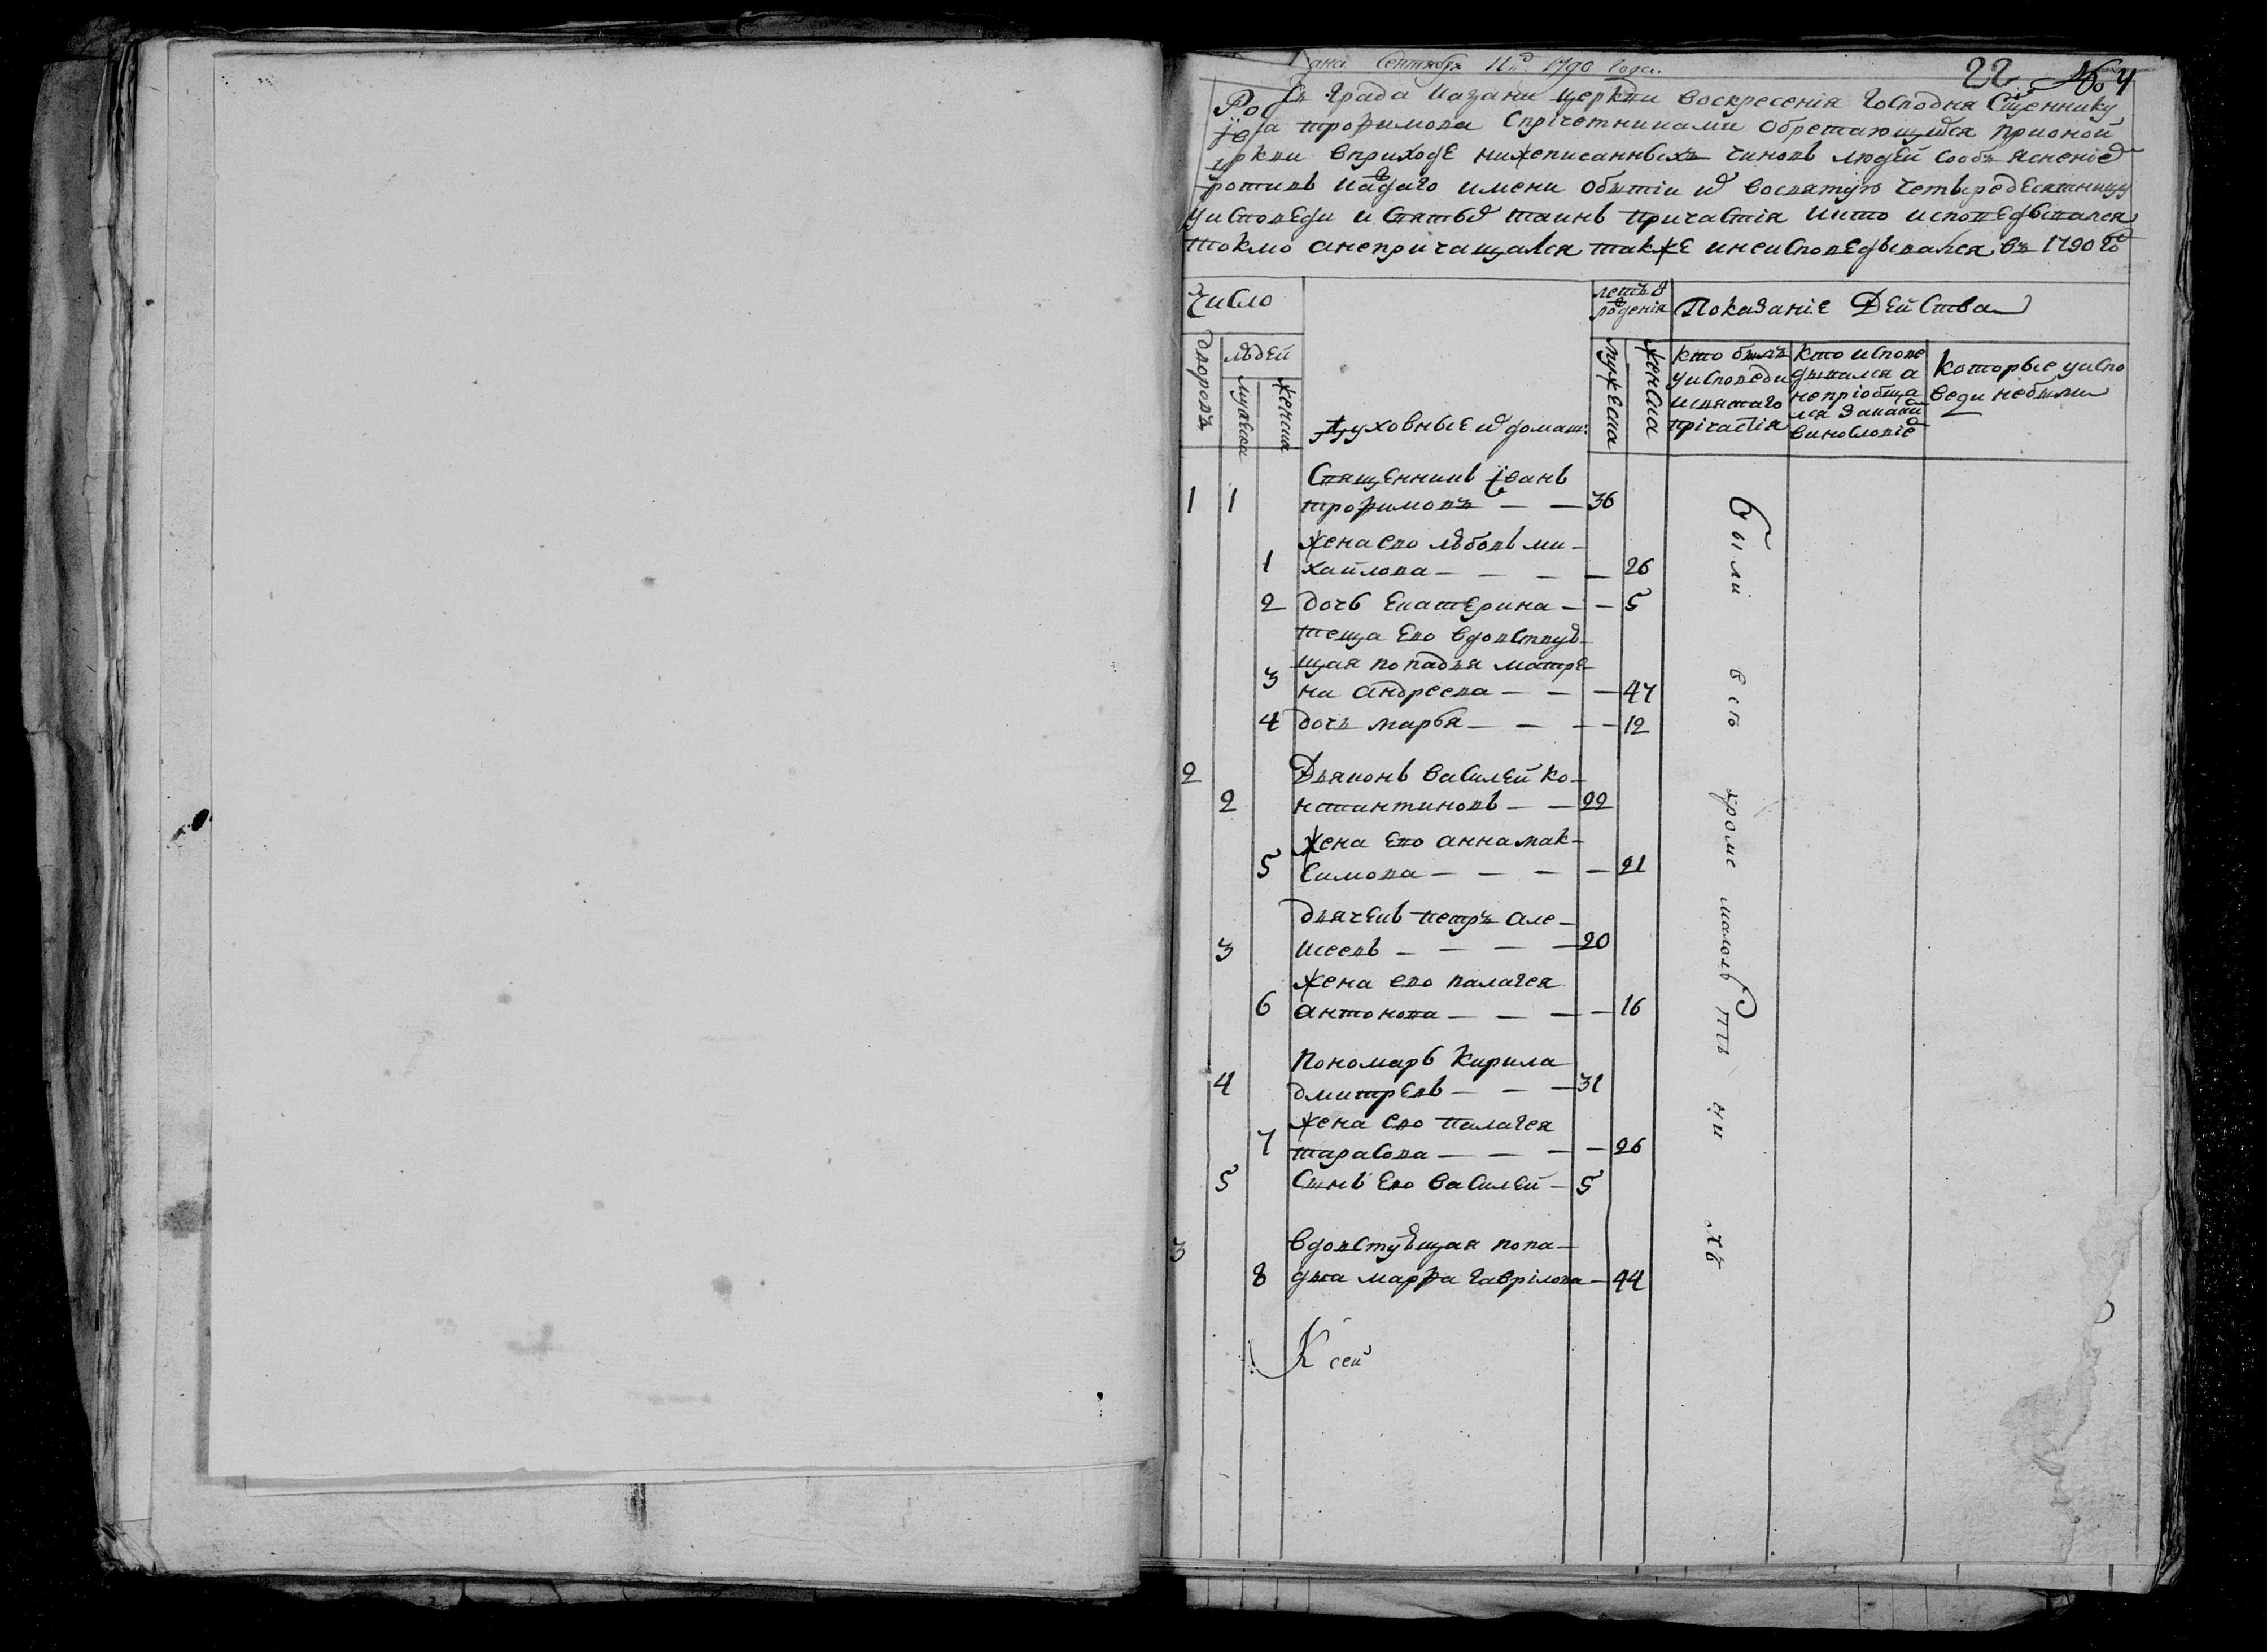 Сентября 11д 1790 Года.
22 № 4
града Казани церкви воскресения Господня Сщеннику
трофимова Спричетниками обретающимся прионой
вприходе нижеписанныхъ чиновъ людей Собъяснение
имени обытии их восвятую четыредесятницу
уисповеди и Святыхъ таинъ причастия икто исповедывался
токмо анепричащался также инеисповедывался въ 1790 год
Число
летъ от рождения
Показание Действа
дворовъ
людей
мужеска
женска
Духовные ихъ домаш:
мужеска
женска
кто былъ уисповеди исвятаго причастия
кто исповедывался а неприобщался закаким винословие
Которые уисповеди небыли
1 1 Священникъ Їванъ
трофимовъ — — 36
жена ево любовь ми-
1 хаилова — — — — 26
2 дочь Екатерина — — 5
теща Ево вдовствую-
щая попадья матре-
3 на андреева — — — 47
4 дочь марья — — — — 12
2 Дьяконъ Василей Ко-
2 нстантиновъ — — 22
жена Ево анна мак-
5 симова — — — — 21
дьячекъ петръ але-
3 ксеевъ — — — — 20
жена ево палагея
6 антонова — — — — 16
Пономарь Кирила
4 дмитревъ — — — 31
жена Ево палагея
7 тарасова — — — — 26
5 Сынъ Ево Василей — 5
3 вдовствующая попа-
8 дья марфа Гаврилова — 44
были всѣ кроме малолѣтныхъ
К сей